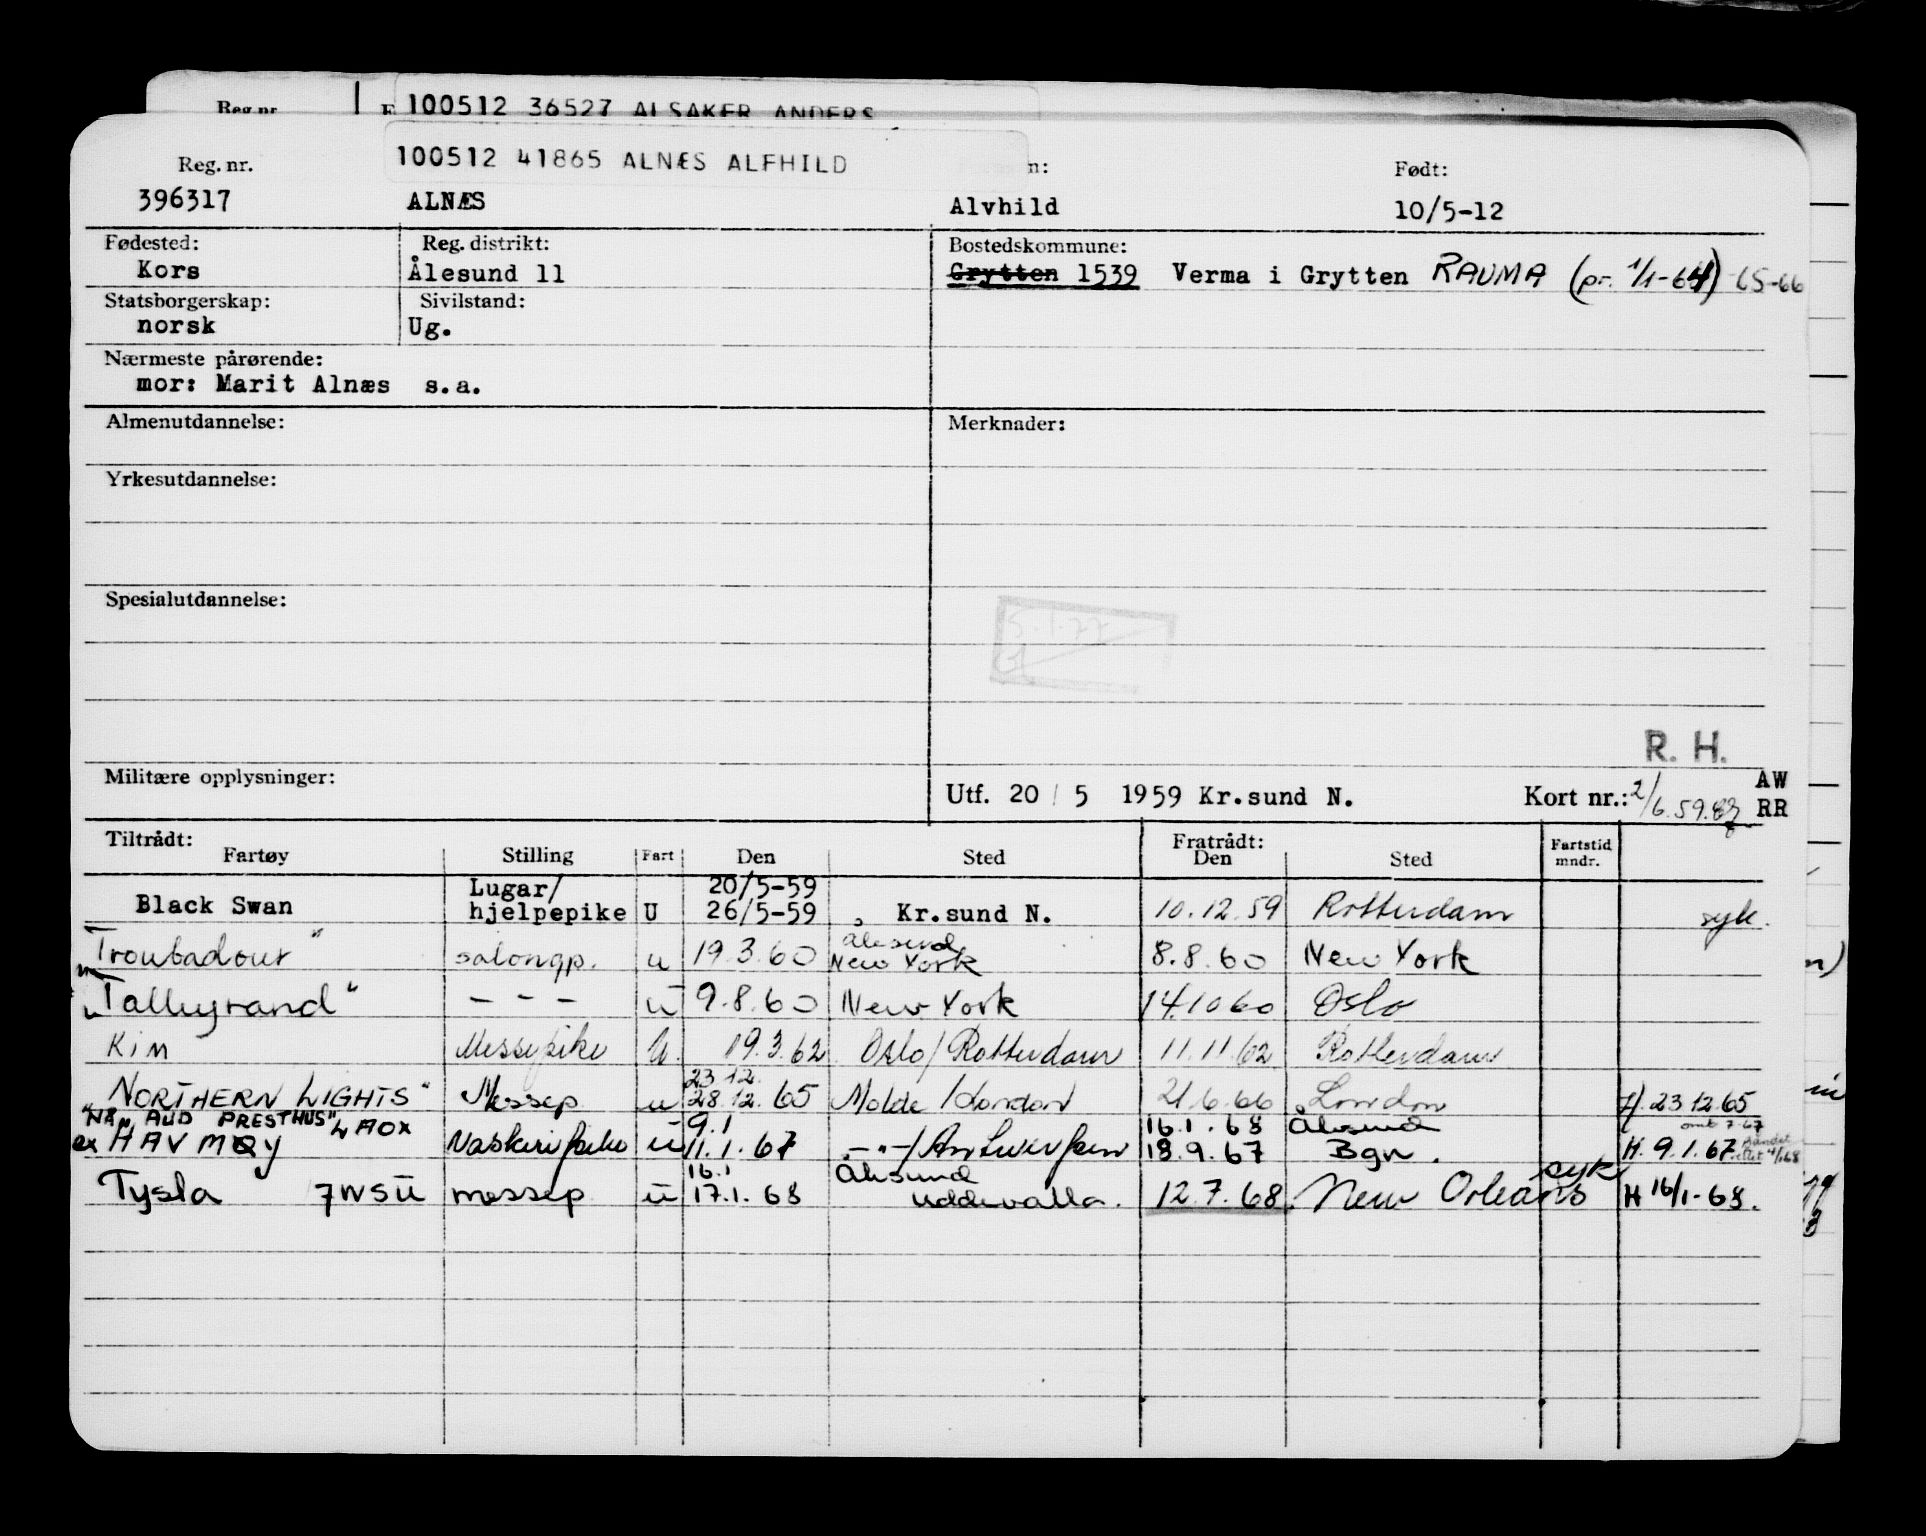 Reg. nr.
100512 36527 ALSAKER ANDERS
100512 41865 ALNÆS ALFHILD
Reg. nr. n: Født:
396317 ALNÆS Alvhild 10/5-12
Fødested: Reg. distrikt: Bostedskommune:
Kors Ålesund 11 Grytten 1539 Verma i Grytten RAUMA (pr. 1/1-64) 65-66
Statsborgerskap: Sivilstand:
norsk Ug.
Nærmeste pårørende:
mor: Marit Alnæs s.a.
Almenutdannelse: Merknader:
Yrkesutdannelse:
Spesialutdannelse:
5.1.77
R. H.
Militære opplysninger: Utf. 20 / 5 1959 Kr.sund N. Kort nr.: 2/6.59. AW
RR
Tiltrådt: Fratrådt:
Fartøy Stilling Fart Den Sted Den Sted Fartstid mndr.
Black Swan Lugar/hjelpepike U 20/5-59 26/5-59 Kr.sund N. 10.12.59 Rotterdam syk.
Troubadour" salongp. u 19.3.60 Ålesund New York 8.8.60 New York
"Talleyrand" - - - u 9.8.60 New York 14.10 60 Oslo
Kim Messepike U. 19.3.62 Oslo/Rotterdam 11.11.62 Rotterdam
"NORTHERN LIGHTS" Messep u 23.12. 28.12.65 Molde/London 21.6.66 London H. 23 12.65
"NÅ" AUD PRESTHUS" LAOX 9.1 16.1.68 Ålesund
ex HAVMØY Vaskeripike u 11.1.67 -"-/Antwerpen 18.9.67 Bgn. H. 9.1.67
Tysla 7WSU messep u 16.1 17.1.68 Ålesund Uddevalla. 12.7.68 New Orleans syk H 16/1-68.